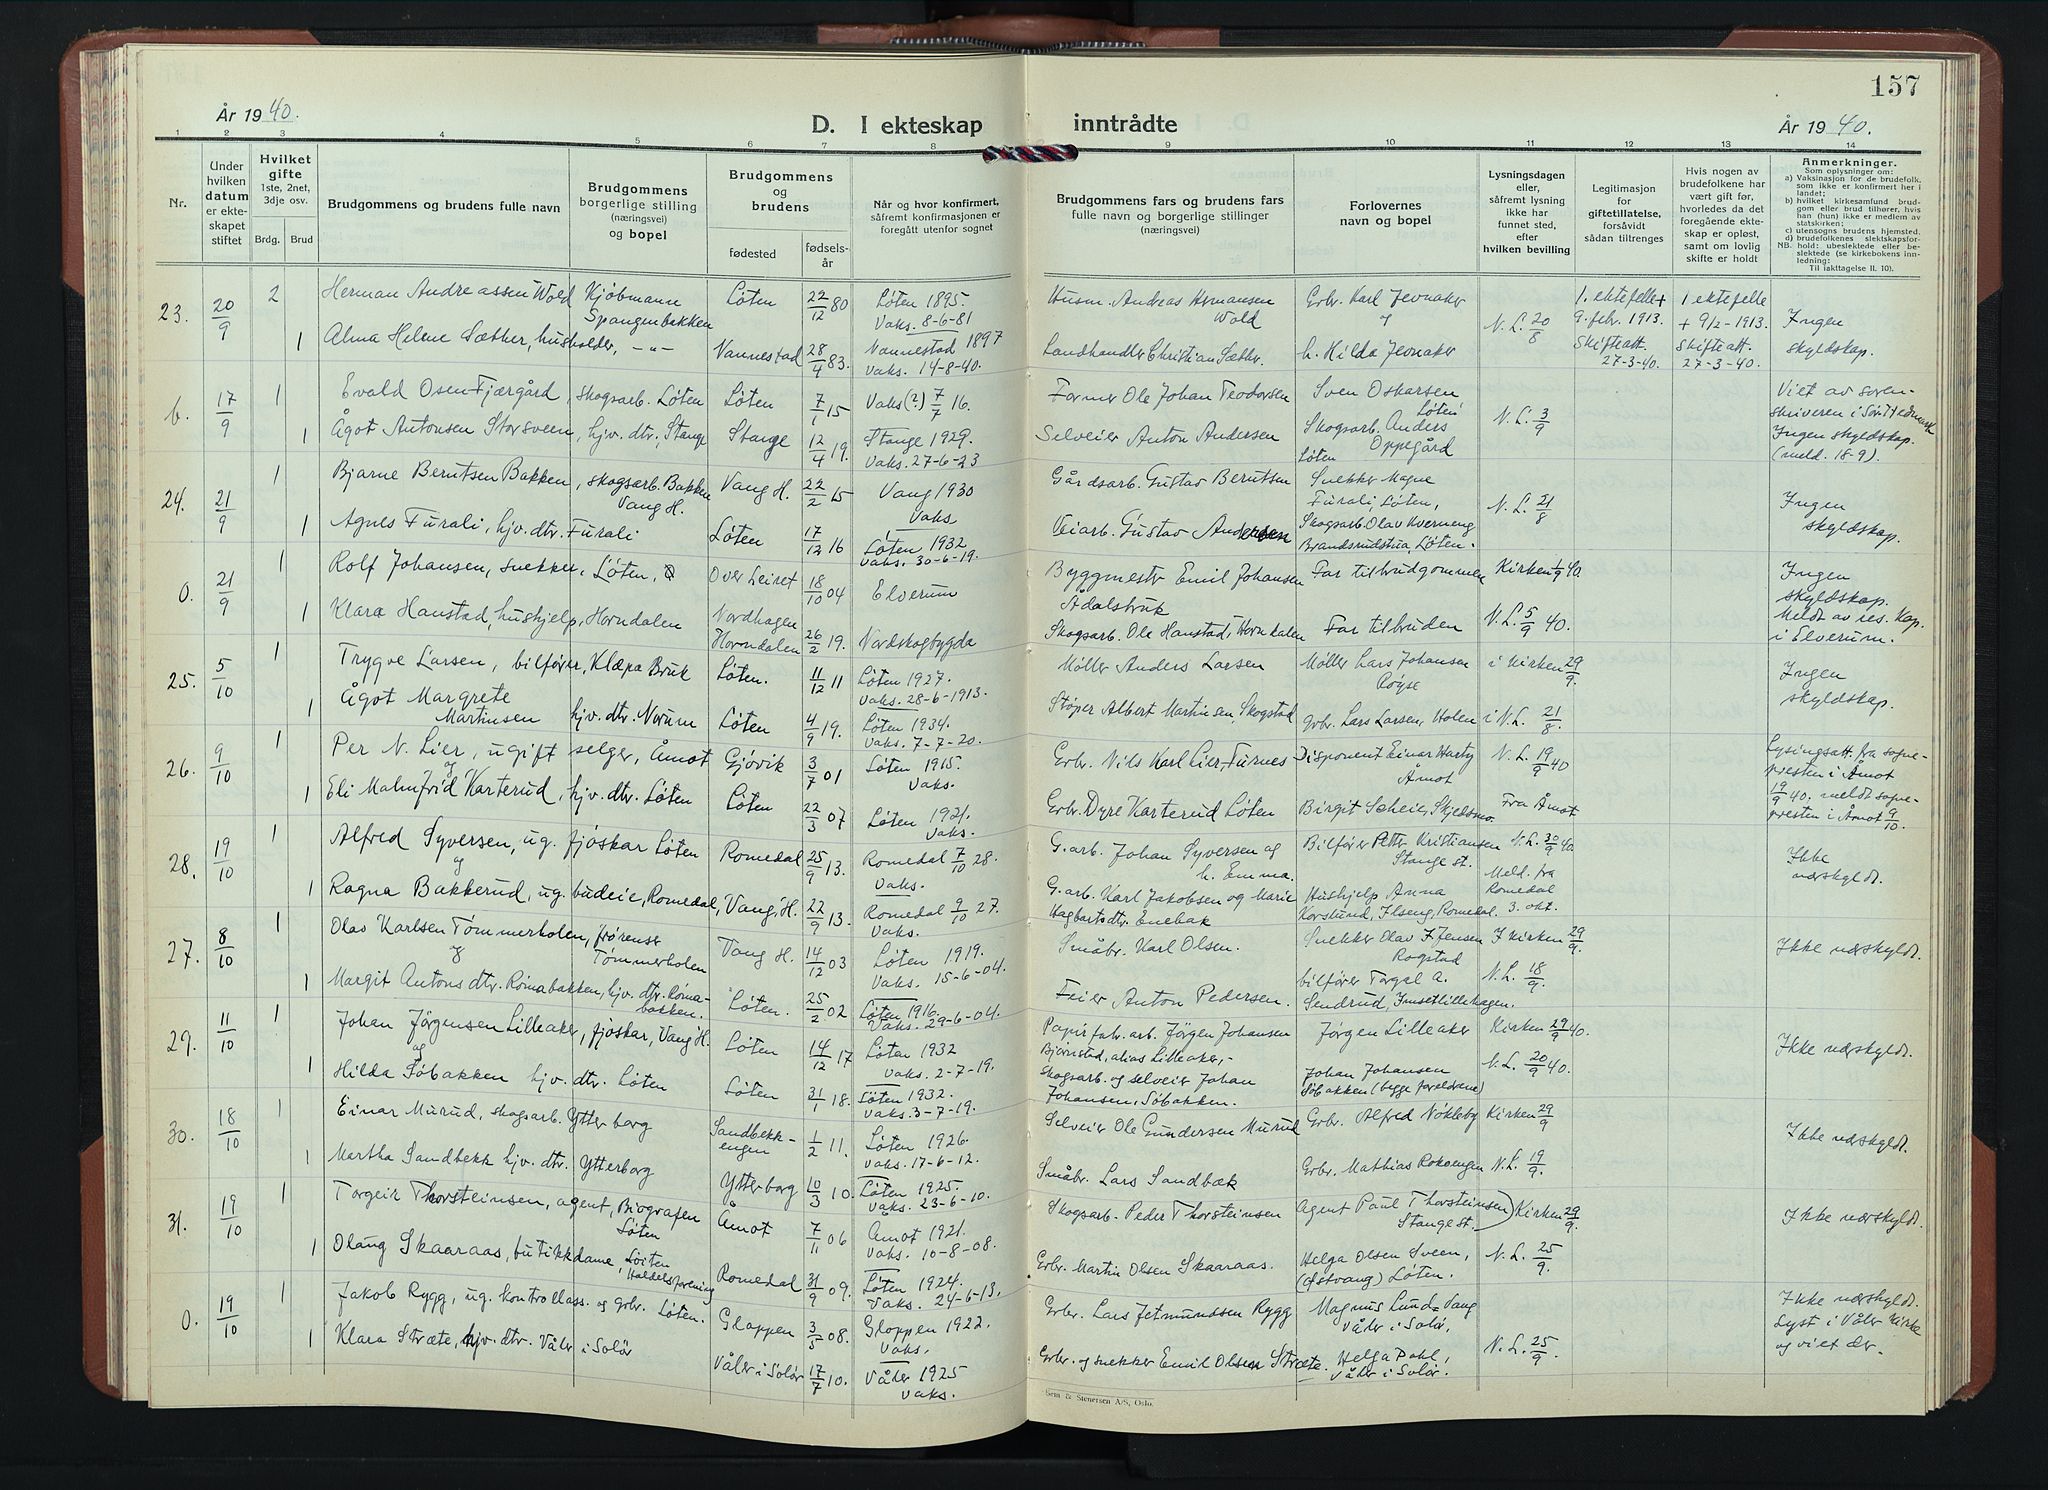 157
År 1940.
D. I ekteskap inntrådte
År 1940.
1 2 3 4 5 6 7 8 9 10 11 12 13 14
Nr.
Under hvilken datum er ekteskapet stiftet
Hvilket gifte
1ste, 2net, 3dje osv.
Brdg. Brud
Brudgommens og brudens fulle navn
Brudgommens borgerlige stilling (næringsvei) og bopel
Brudgommens og brudens
fødested
fødselsår
Når og hvor konfirmert, såfremt konfirmasjonen er foregått utenfor sognet
Brudgommens fars og brudens fars fulle navn og borgerlige stillinger (næringsvei)
Forlovernes navn og bopel
Lysningsdagen eller, såfremt lysning ikke har funnet sted, efter hvilken bevilling
Legitimasjon for giftetillatelse, forsåvidt sådan tiltrenges
Hvis nogen av brudefolkene har vært gift før, hvorledes da det foregående ekteskap er opløst, samt om lovlig skifte er holdt
Anmerkninger.
Som oplysninger om:
a) Vaksinasjon for de brudefolk, som ikke er konfirmert her i landet;
b) hvilket kirkesamfund brudgom eller brud tilhører, hvis han (hun) ikke er medlem av statskirken;
c) utensogns brudens hjemsted.
d) brudefolkenes slektskapsforhold: ubeslektede eller beslektede (se kirkebokens innledning:
NB.
Til iakttagelse II. 10).
23. 20/9 2 Herman Andreassen Wold Kjøbmann Spangenbakken Løten 22/12 80 Løten 1895. Vaks. 8-6-81 Husm. Andreas Hermansen Wold Grbr. Karl Jevnaker N.L. 20/8 1. ektefelle + 9. febr. 1913. Skifteatt. 27-3-40. 1 ektefelle + 9/2-1913. Skifteatt. 27-3-40. Ingen skyldskap.
1 Alma Helene Sæther, husholder, -"- Nannestad 28/4 83. Nannestad 1897 Vaks. 14-8-40. Landhandler Christian Sæther. h. Hilda Jevnaker
b. 17/9 1 Evald Osen Fjærgård, skogsarb. Løten Løten 7/1 15 Vaks (?) 7/7 16. Farmer Ole Johan Teodorsen Sven Oskarsen Løten N.L. 3/9 Viet av sorenskriveren i Sør Hedmark Ingen skyldskap. (meld. 18-9).
1 Ågot Antonsen Storsveen, hjv. dtr., Stange Stange 12/4 19. Stange 1929. Vaks. 27-6-23 Selveier Anton Andersen Skogsarb. Anders Oppegård Løten
24. 21/9 1 Bjarne Berntsen Bakken, skogsarb. Bakken Vang H. Vang H. 22/2 15 Vang 1930 Vaks Gårdsarb. Gustav Berntsen Snekker Magne Furali, Løten, N.L. 21/8 Ingen skyldskap.
1 Agnes Furali, hjv. dtr. Furali Løten 17/12 16 Løten 1932 Vaks. 30-6-19. Veiarb. Gustav Andersen Skogsarb. Olav Kverneng Brandsrudstua, Løten.
0. 21/9 1 Rolf Johansen, snekker, Løten, Over Leiret 18/10 04 Elverum Byggmester Emil Johansen Ådalsbruk Far til brudgommen Kirken 1/9 40. Ingen skyldskap. Meldt av res. Kap. i Elverum.
1 Klara Hanstad, hushjelp, Horndalen Nordhagen Horndalen 26/2 19. Nordskogbygda Skogsarb. Ole Hanstad, Horndalen Far til bruden N.L. 5/9 40.
25. 5/10 1 Trygve Larsen, bilfører, Klæpa Bruk Løten. 11/12 11 Løten 1927. Vaks. 28-6-1913. Møller Anders Larsen Møller Lars Johansen Røyse i Kirken 29/9. Ingen skyldskap.
1 Ågot Margrete Martinsen hjv. dtr. Norum Løten 4/9 19. Løten 1934. Vaks. 7-7-20. Støper Albert Martinsen, Skogstad Grbr. Lars Larsen, Holen i N.L. 21/8.
26. 9/10 1 Per N. Lier, ugift selger, Åmot Gjøvik 3/7 01 Løten 1915. Vaks. Grbr. Nils Karl Lier, Furnes Disponent Einar Harby Åmot N.L. 19/9 40 Lysingsatt. fra sognepresten i Åmot 19/9 40. meldt sognepresten i Åmot 9/10.
og
1 Eli Malmfrid Karterud, hjv. dtr. Løten Løten 22/3 07 Løten 1921. Vaks. Grbr. Dyre Karterud Løten Birgit Scheie, Fra Åmot
28. 19/10 1 Alfred Syversen, ug. fjøskar Løten Romedal 25/9 13. Romedal 7/10 28. Vaks. G.arb. Johan Syversen og h. Emma. Bilfører Petter Kristiansen Stange st. N.L. 30/9 40 Ikke nærskyldt.
og
1 Ragna Bakkerud, ug. budeie, Romedal, Vang, H. 22/9 13. Romedal 9/10 27. Vaks. G.arb. Karl Jakobsen og Marie Hagbartsdtr. Enebak Hushjelp Anna Korslund, Ilseng, Romedal. Meld. fra Romedal 3. okt.
27. 8/10 1 Olav Karlsen Tømmerholen, frørenser Tømmerholen Vang H. 14/12 03 Løten 1919. Vaks. 15-6-04. Småbr. Karl Olsen. Snekker Olav Jensen Rogstad I Kirken 29/9. Ikke nærskyldt.
og
1 Margit Antons dtr. Rømabakken, hjv. dtr. Rømabakken. Løten. 25/2 02 Løten 1916. Vaks. 29-6-04. Feier Anton Pedersen. bilfører Torgal A. Sendrud, Imsetlillehagen. N.L. 18/9.
29. 11/10 1 Johan Jørgensen Lilleaker, fjøskar, Vang H. Løten 14/12 17 Løten 1932 Vaks. 2-7-19. Papirfabr.arb. Jørgen Johansen Bjørnstad, alias Lilleaker,- Jørgen Lilleaker Kirken 29/9 40. Ikke nærskyldt.
og
1 Hilda Søbakken hjv. dtr. Løten Løten 31/1 18. Løten 1932. Vaks. 3-7-19. Skogsarb. og selveier Johan Johansen, Søbakken. Johan Johansen Søbakken (begge foreldrane) N.L. 20/9 40.
30. 18/10 1 Einar Murud, skogsarb. Ytterborg Sandbekkengen 1/2 11. Løten 1926. Vaks. 17-6-12. Selveier Ole Gundersen Murud Grbr. Alfred Nøkleby Kirken 29/9 Ikke nærskyldt.
1 Martha Sandbekk hjv. dtr. Ytterborg Ytterborg 10/3 10. Løten 1925. Vaks. 23-6-10. Småbr. Lars Sandbæk Grbr. Mathias Rokoengen N.L. 19/9.
31. 19/10 1 Torgeir Thorsteinsen, agent, Biografen Løten Åmot 7/11 06 Åmot 1921. Vaks. 10-8-08. Skogsarb. Peder Thorsteinsen Agent Paul Thorsteinsen Stange st. Kirken 29/9. Ikke nærskyldt.
1 Olaug Skaaraas, butikkdame, Løiten Haldelsforening Romedal 31/9 09. Løten 1924. Vaks. 24-6-13. Grbr. Martin Olsen Skaaraas. Helga Olsen Sveen, (Østvang) Løten. N.L. 25/9.
0. 19/10 1 Jakob Rygg, ug. kontrollass. og grbr. Løten. Gloppen 3/5 08. Gloppen 1922. Vaks. Grbr. Lars Jetmundsen Rygg Magnus Lund-Vang Våler i Solør, Ikke nærskyldt. Lyst i Våler Kirke og viet der.
1 Klara Stræte, hjv. dtr. Våler i Solør Våler i Solør 17/7 10. Våler 1925 Vaks. Grbr. og snekker Emil Olsen Stræte. Helga Dahl, Våler i Solør. N.L. 25/9.
Sem & Stenersen A/S, Oslo.